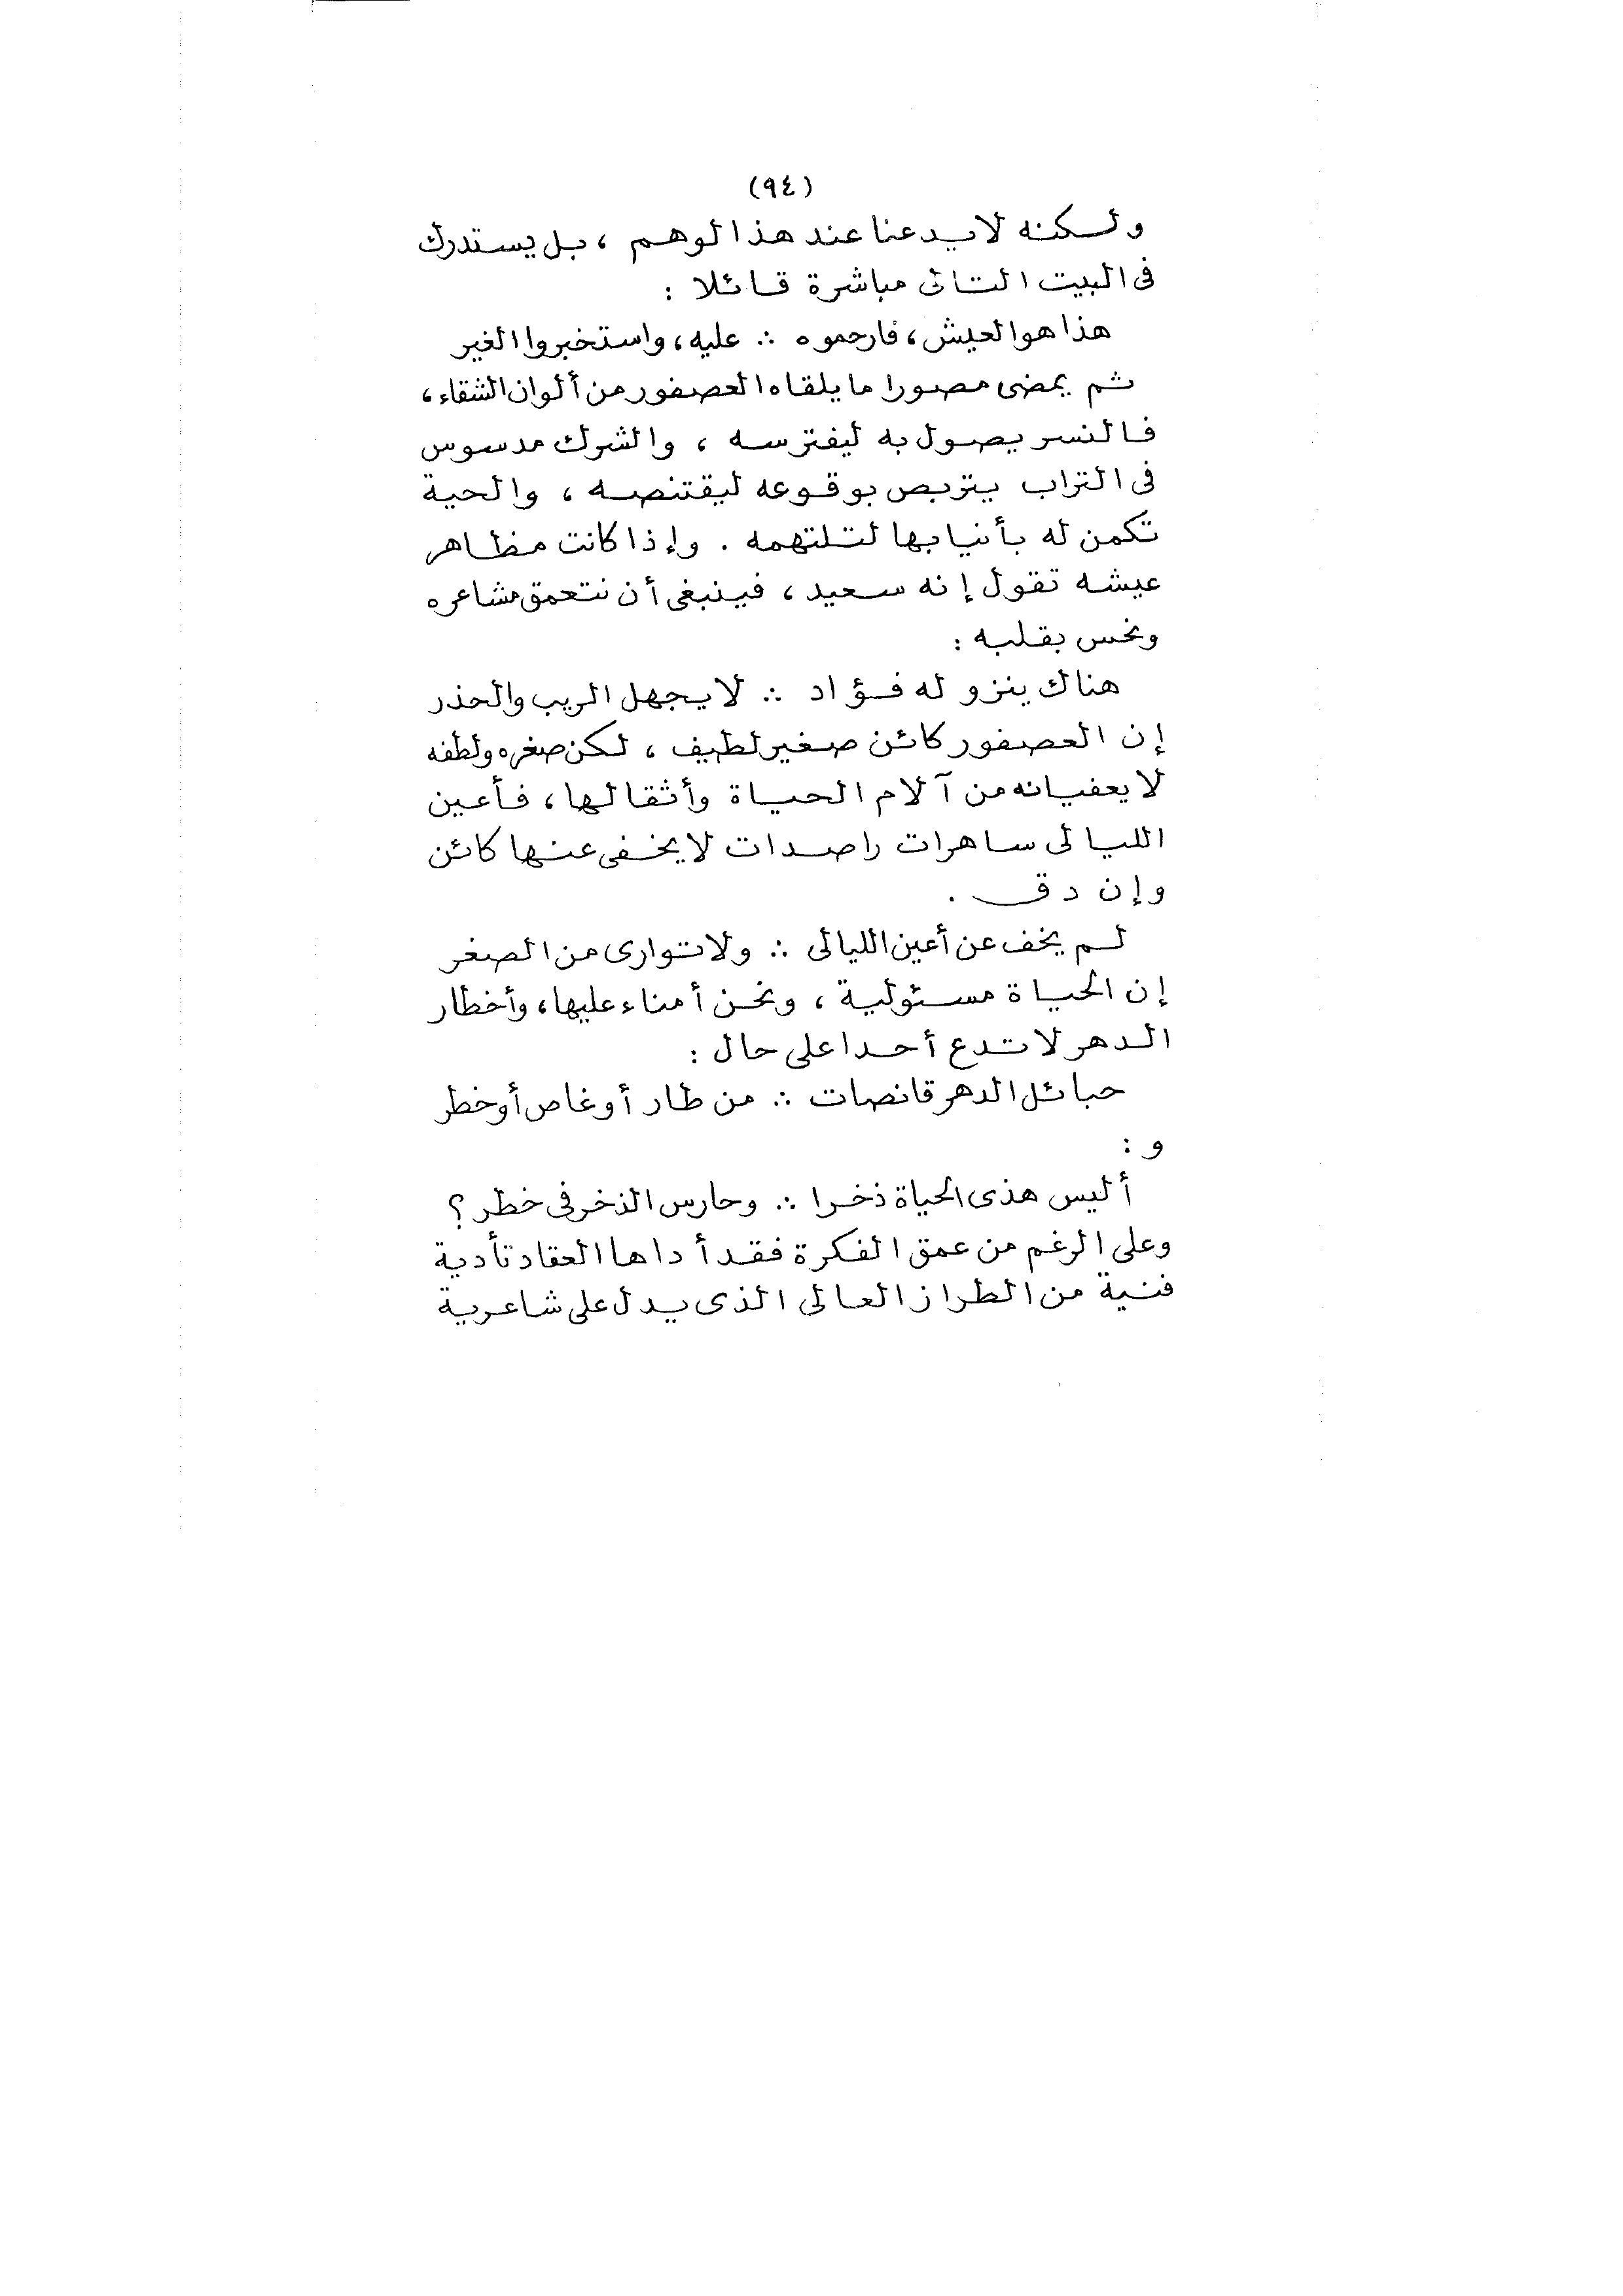 (٩٤)
ولكنه لا يدعنا عند هذا الوهم ، بل يستدرك
فى البيت التالى مباشرة قائلا :
هذا هو العيش، فارحموه ∴ عليه، واستخبروا الغير
ثم يمضى مصورا ما يلقاه العصفور من ألوان الشقاء ،
فالنسر يصول به ليفترسه ، والشرك مدسوس
فى التراب يتربص بوقوعه ليقتنصه ، والحية
تكمن له بأنيابها لتلتهمه . وإذا كانت مظاهر
عيشه تقول إنه سعيد ، فينبغى أن نتعمق مشاعره
ونحس بقلبه :
هناك ينزو له فؤاد ∴ لا يجهل الريب والحذر
إن العصفور كائن صغير لطيف ، لكن صغره ولطفه
لا يعفيانه من آلام الحياة وأثقالها ، فأعين
الليالى ساهرات راصدات لا يخفى عنها كائن
وإن دق .
لم يخف عن أعين الليالى ∴ ولا توارى من الصغر
إن الحياة مسئولية ، ونحن أمناء عليها ، وأخطار
الدهر لا تدع أحدا على حال :
حبائل الدهر قانصات ∴ من طار أو غاص أو خطر
و :
أليس هذى الحياة ذخرا ∴ وحارس الذخر فى خطر ؟
وعلى الرغم من عمق الفكرة فقد أداها العقاد تأدية
فنية من الطراز العالى الذى يدل على شاعرية